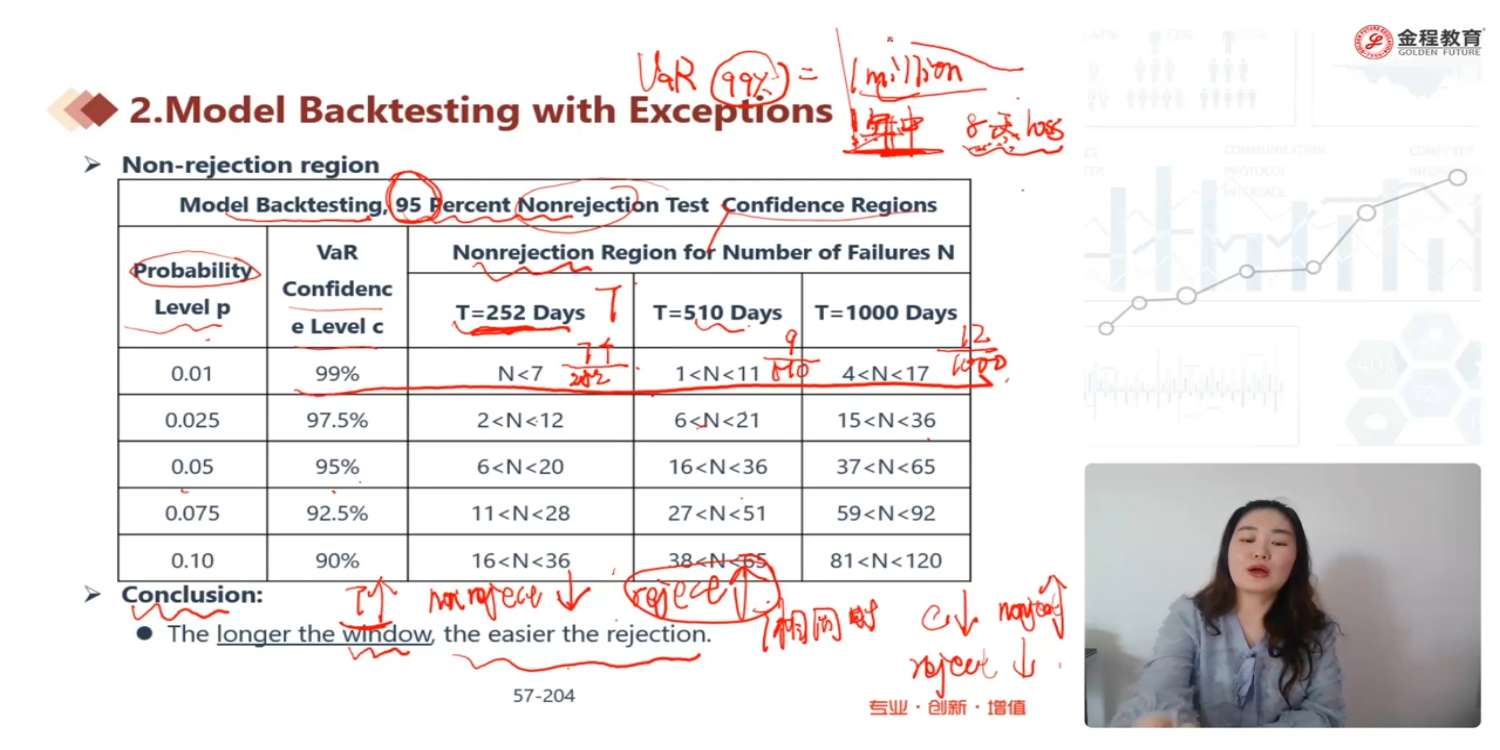 金程教育
GOLDEN FUTURE
VaR 99% = 1 million
2.Model Backtesting with Exceptions
8天 loss
Non-rejection region
Model Backtesting, 95 Percent Nonrejection Test Confidence Regions
Probability Level p
VaR Confidenc e Level c
Nonrejection Region for Number of Failures N
T=252 Days T T=510 Days T=1000 Days
0.01 99% N<7 7个/252 1<N<11 9/510 4<N<17 12/1000
0.025 97.5% 2<N<12 6<N<21 15<N<36
0.05 95% 6<N<20 16<N<36 37<N<65
0.075 92.5% 11<N<28 27<N<51 59<N<92
0.10 90% 16<N<36 38<N<65 81<N<120
Conclusion:
T↑ nonreject ↓ reject ↑
T相同时 C↓ nonreject ↑
reject ↓
The longer the window, the easier the rejection.
57-204
专业·创新·增值